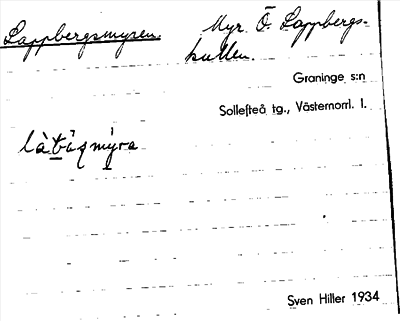 Lappbergsmyren. Myr. Ö. Lappbergs-
kullen.
Graninge s:n
Sollefteå tg., Västernorrl. l.
Sven Hiller 1934